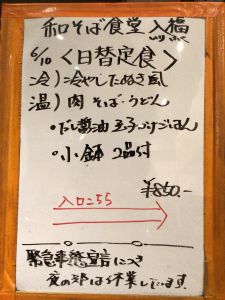 和そば食堂 入福
6/10 <日替定食>
冷) 冷やしたぬき風
温) 肉そば・うどん
・だし醤油玉子かけごはん
・小鉢 2品付
¥850.-
入口こちら
緊急事態宣言につき
夜の部は休業しています。